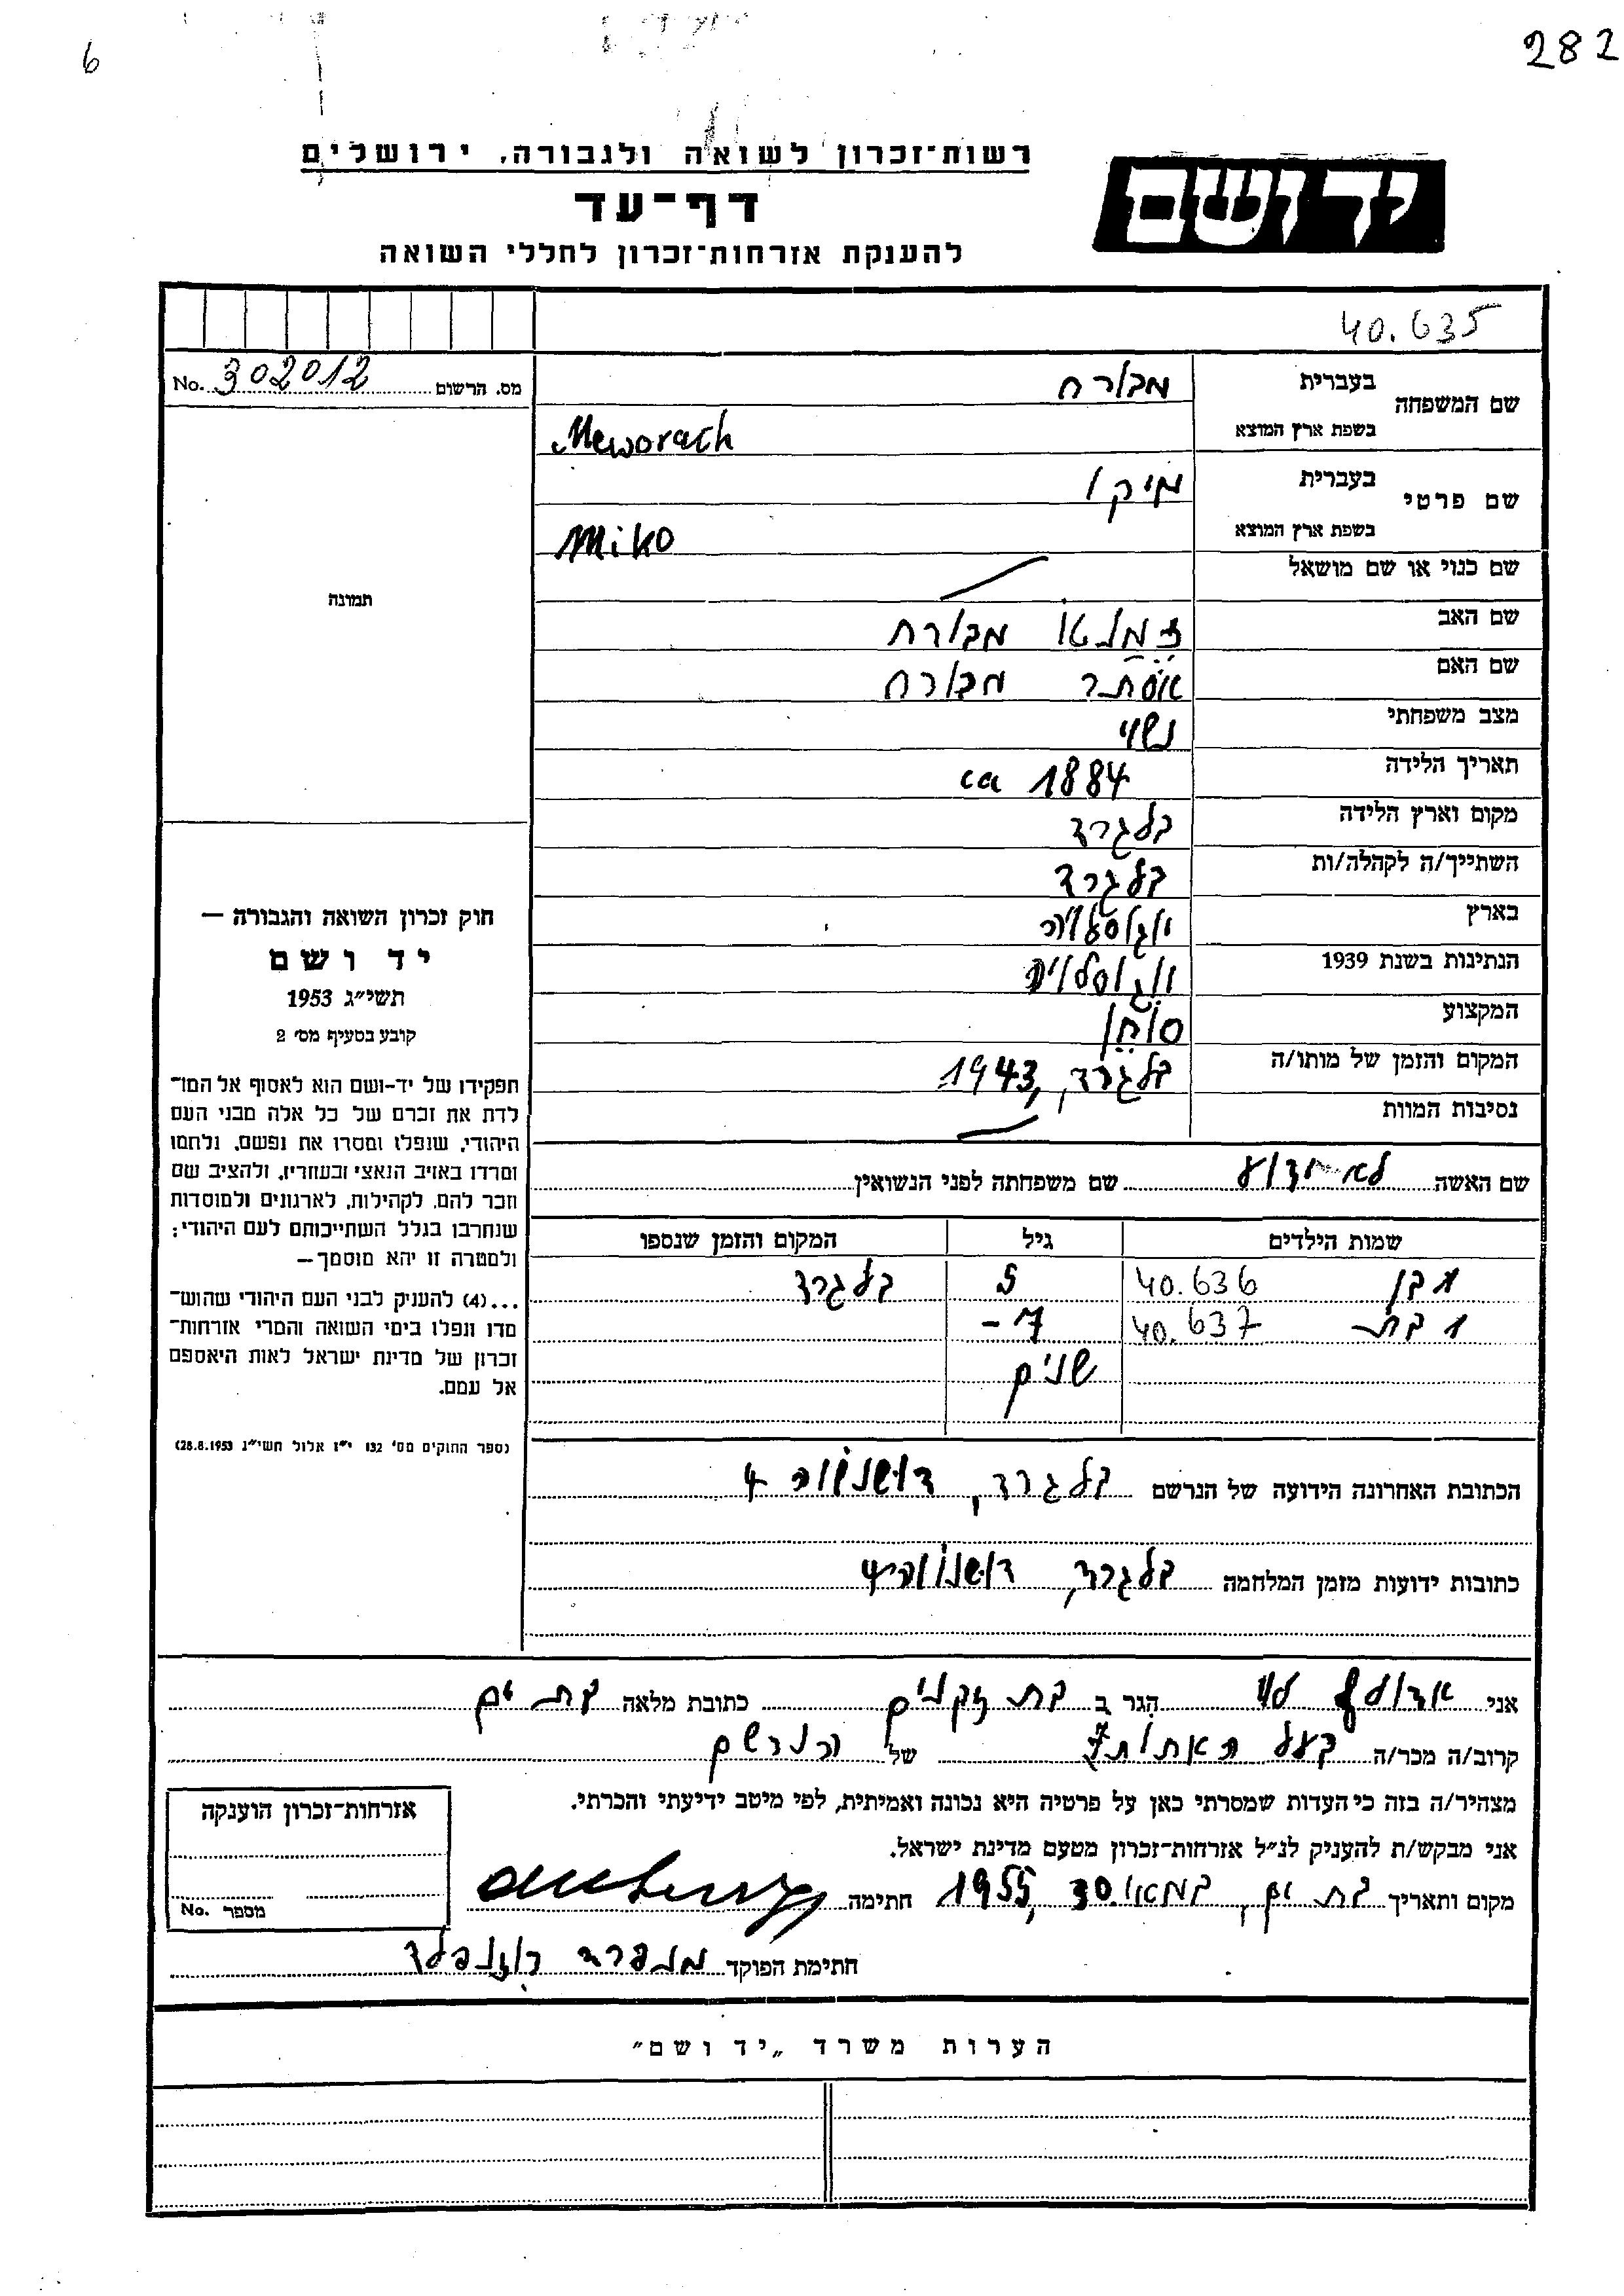 6
282
ידושם
רשות־זכרון לשואה ולגבורה, ירושלים
דף־עד
להענקת אזרחות־זכרון לחללי השואה
40.635
מס. הרשום No. 302012
שם המשפחה
בעברית מבורח
בשפת ארץ המוצא Meworach
שם פרטי
בעברית מיקו
בשפת ארץ המוצא Miko
שם כנוי או שם מושאל
תמונה
שם האב מבורח
שם האם אסתר מבורח
מצב משפחתי נשוי
תאריך הלידה ca 1884
מקום וארץ הלידה בלגרד
השתייך/ה לקהלה/ות בלגרד
בארץ יוגוסלויה
הנתינות בשנת 1939 יוגוסלוית
המקצוע סוחר
המקום והזמן של מותו/ה בלגרד, 1943
נסיבות המוות
חוק זכרון השואה והגבורה —
יד ושם
תשי״ג 1953
קובע בסעיף מס׳ 2
תפקידו של יד-ושם הוא לאסוף אל המו־
לדת את זכרם של כל אלה מבני העם
היהודי, שנפלו ומסרו את נפשם, נלחמו
ומרדו באויב הנאצי ובעוזריו, ולהציב שם
וזכר להם, לקהילות, לארגונים ולמוסדות
שנחרבו בגלל השתייכותם לעם היהודי;
ולמטרה זו יהא מוסמך—
...(4) להעניק לבני העם היהודי שהוש־
מדו ונפלו בימי השואה והמרי אזרחות־
זכרון של מדינת ישראל לאות היאספם
אל עמם.
(ספר החוקים מס׳ 132 י״ז אלול תשי״ג 28.8.1953)
שם האשה לא ידוע שם משפחתה לפני הנשואין
שמות הילדים גיל המקום והזמן שנספו
1 בן 40.636 5 בלגרד
1 בת 40.637 7-
שנים
הכתובת האחרונה הידועה של הנרשם בלגרד, 4
כתובות ידועות מזמן המלחמה בלגרד,
אני אדולף לוי הגר ב בת זקנים כתובת מלאה בת ים
קרוב/ה מכר/ה בעל האחות של הנרשם
מצהיר/ה בזה כי העדות שמסרתי כאן על פרטיה היא נכונה ואמיתית, לפי מיטב ידיעתי והכרתי.
אני מבקש/ת להעניק לנ״ל אזרחות־זכרון מטעם מדינת ישראל.
מקום ותאריך בת ים, במאי 30, 1955 חתימה
חתימת הפוקד מנפרד רוזנפלד
אזרחות־זכרון הוענקה
מספר No.
הערות משרד „יד ושם״